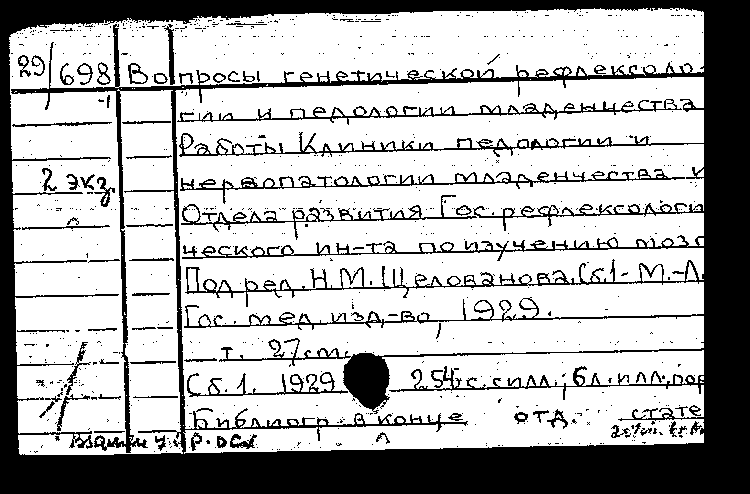 29/698 Вопросы генетической рефлексоло-
-1
гии и педологии младенчества
Работы Клиники педологии и
2 экз. нервопатологии младенчества и
Отдела развития Гос. рефлексологи
ческого ин-та по изучению мозг
Под ред. Н.М. Щелованова. Сб.1- М.-Л.
Гос. мед. изд-во, 1929.
т. 27 см.
Сб. 1. 1929 254 с. с илл.; 6 л. илл., пор
Библиогр. в конце отд. стате